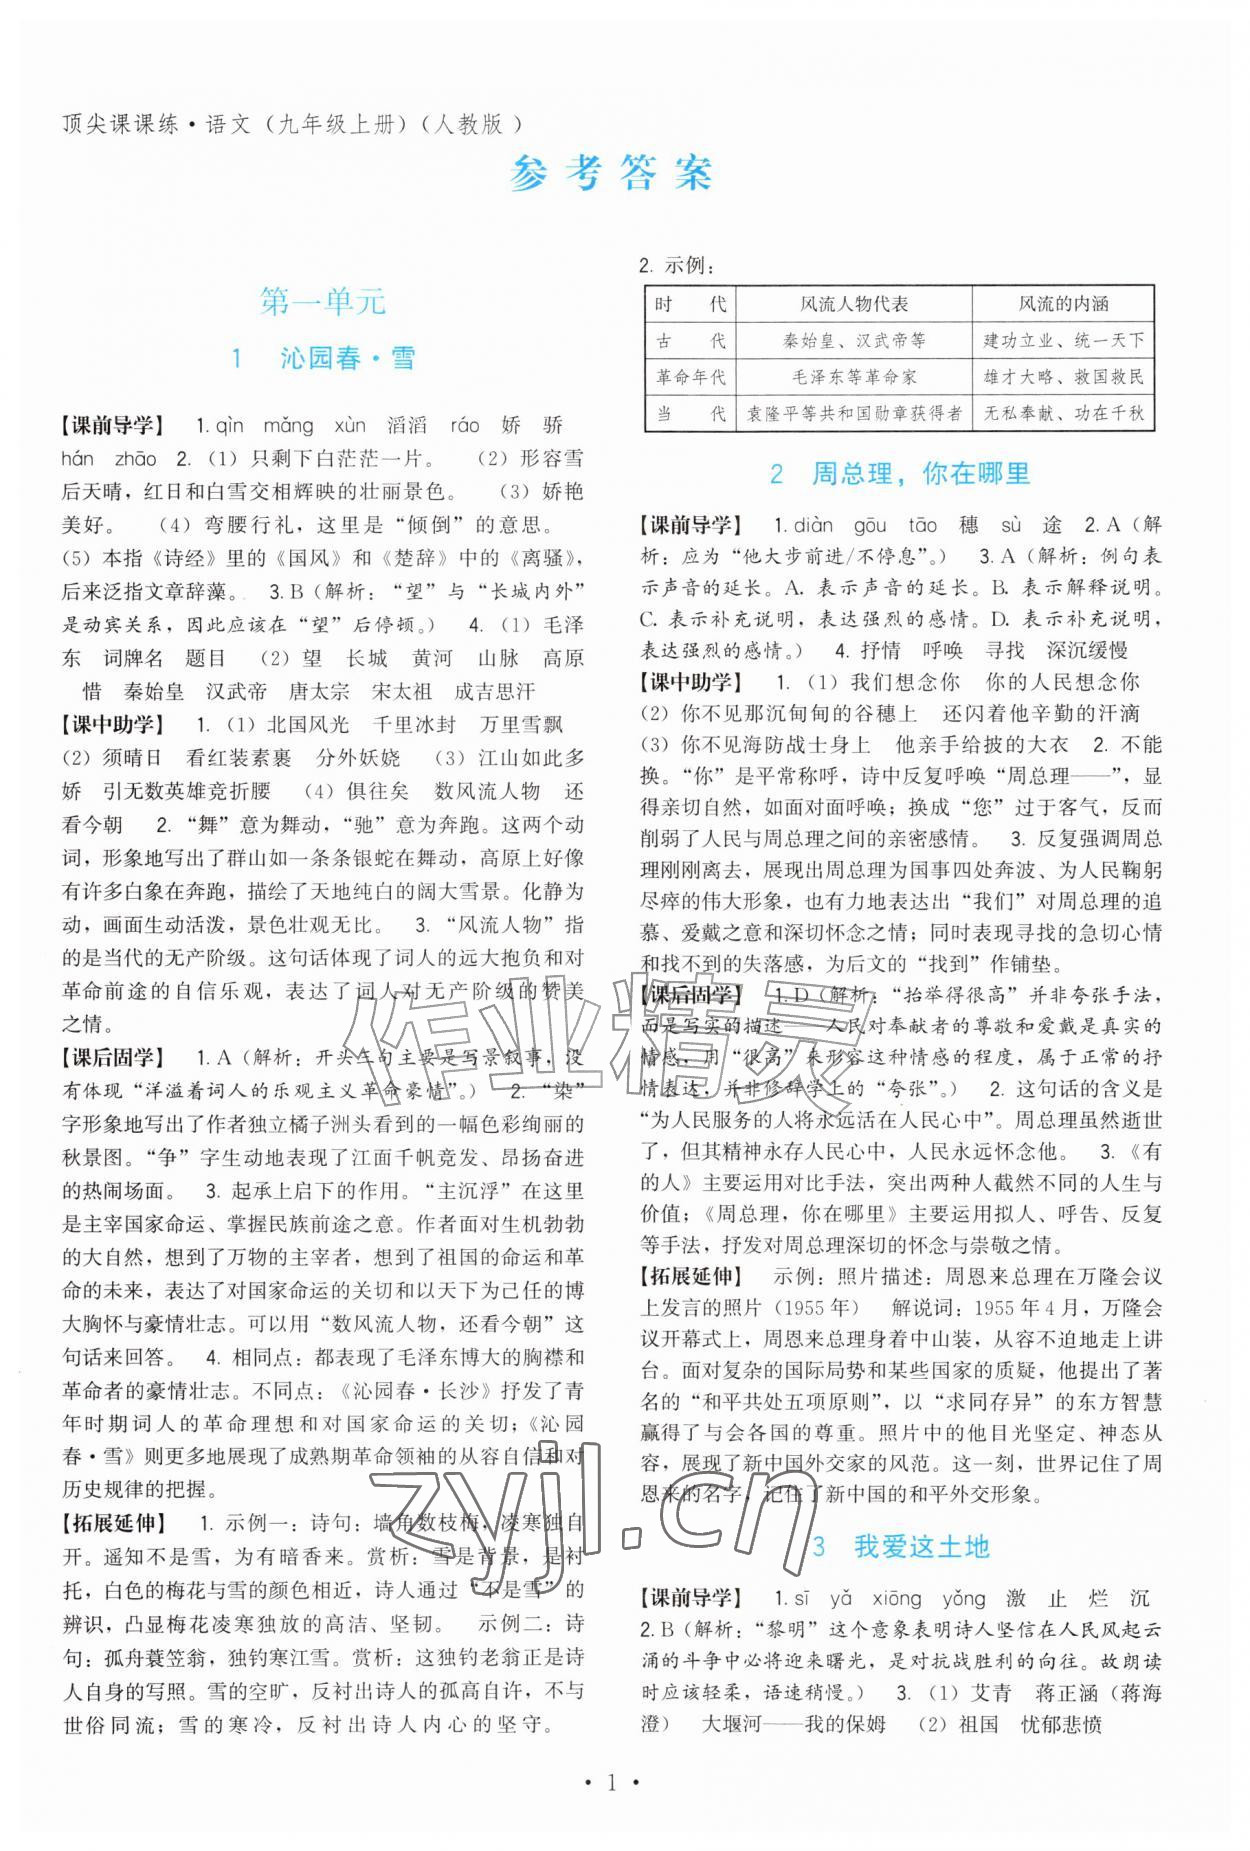 顶尖课课练·语文（九年级上册）（人教版）
参考答案
第一单元
1 沁园春·雪
【课前导学】 1. qìn mǎng xùn 滔滔 ráo 娇 骄
hán zhāo 2.（1）只剩下白茫茫一片。 （2）形容雪
后天晴，红日和白雪交相辉映的壮丽景色。 （3）娇艳
美好。 （4）弯腰行礼，这里是“倾倒”的意思。
（5）本指《诗经》里的《国风》和《楚辞》中的《离骚》，
后来泛指文章辞藻。 3. B（解析：“望”与“长城内外”
是动宾关系，因此应该在“望”后停顿。） 4.（1）毛泽
东 词牌名 题目 （2）望 长城 黄河 山脉 高原
惜 秦始皇 汉武帝 唐太宗 宋太祖 成吉思汗
【课中助学】 1.（1）北国风光 千里冰封 万里雪飘
（2）须晴日 看红装素裹 分外妖娆 （3）江山如此多
娇 引无数英雄竞折腰 （4）俱往矣 数风流人物 还
看今朝 2. “舞”意为舞动，“驰”意为奔跑。这两个动
词，形象地写出了群山如一条条银蛇在舞动，高原上好像
有许多白象在奔跑，描绘了天地纯白的阔大雪景。化静为
动，画面生动活泼，景色壮观无比。 3. “风流人物”指
的是当代的无产阶级。这句话体现了词人的远大抱负和对
革命前途的自信乐观，表达了词人对无产阶级的赞美
之情。
【课后固学】 1. A（解析：开头三句主要是写景叙事，没
有体现“洋溢着词人的乐观主义革命豪情”。） 2. “染”
字形象地写出了作者独立橘子洲头看到的一幅色彩绚丽的
秋景图。“争”字生动地表现了江面千帆竞发、昂扬奋进
的热闹场面。 3. 起承上启下的作用。“主沉浮”在这里
是主宰国家命运、掌握民族前途之意。作者面对生机勃勃
的大自然，想到了万物的主宰者，想到了祖国的命运和革
命的未来，表达了对国家命运的关切和以天下为己任的博
大胸怀与豪情壮志。可以用“数风流人物，还看今朝”这
句话来回答。 4. 相同点：都表现了毛泽东博大的胸襟和
革命者的豪情壮志。不同点：《沁园春·长沙》抒发了青
年时期词人的革命理想和对国家命运的关切；《沁园
春·雪》则更多地展现了成熟期革命领袖的从容自信和对
历史规律的把握。
【拓展延伸】 1. 示例一：诗句：墙角数枝梅，凌寒独自
开。遥知不是雪，为有暗香来。赏析：雪是背景，是衬
托，白色的梅花与雪的颜色相近，诗人通过“不是雪”的
辨识，凸显梅花凌寒独放的高洁、坚韧。 示例二：诗
句：孤舟蓑笠翁，独钓寒江雪。赏析：这独钓老翁正是诗
人自身的写照。雪的空旷，反衬出诗人的孤高自许，不与
世俗同流；雪的寒冷，反衬出诗人内心的坚守。
2. 示例：
时 代 风流人物代表 风流的内涵
古 代 秦始皇、汉武帝等 建功立业、统一天下
革命年代 毛泽东等革命家 雄才大略、救国救民
当 代 袁隆平等共和国勋章获得者 无私奉献、功在千秋
2 周总理，你在哪里
【课前导学】 1. diàn gōu tāo 穗 sù 途 2. A（解
析：应为“他大步前进/不停息”。） 3. A（解析：例句表
示声音的延长。A. 表示声音的延长。B. 表示解释说明。
C. 表示补充说明，表达强烈的感情。D. 表示补充说明，
表达强烈的感情。） 4. 抒情 呼唤 寻找 深沉缓慢
【课中助学】 1.（1）我们想念你 你的人民想念你
（2）你不见那沉甸甸的谷穗上 还闪着他辛勤的汗滴
（3）你不见海防战士身上 他亲手给披的大衣 2. 不能
换。“你”是平常称呼，诗中反复呼唤“周总理——”，显
得亲切自然，如面对面呼唤；换成“您”过于客气，反而
削弱了人民与周总理之间的亲密感情。 3. 反复强调周总
理刚刚离去，展现出周总理为国事四处奔波、为人民鞠躬
尽瘁的伟大形象，也有力地表达出“我们”对周总理的追
慕、爱戴之意和深切怀念之情；同时表现寻找的急切心情
和找不到的失落感，为后文的“找到”作铺垫。
【课后固学】 1. D（解析：“抬举得很高”并非夸张手法，
而是写实的描述——人民对奉献者的尊敬和爱戴是真实的
情感，用“很高”来形容这种情感的程度，属于正常的抒
情表达，并非修辞学上的“夸张”。） 2. 这句话的含义是
“为人民服务的人将永远活在人民心中”。周总理虽然逝世
了，但其精神永存人民心中，人民永远怀念他。 3. 《有
的人》主要运用对比手法，突出两种人截然不同的人生与
价值；《周总理，你在哪里》主要运用拟人、呼告、反复
等手法，抒发对周总理深切的怀念与崇敬之情。
【拓展延伸】 示例：照片描述：周恩来总理在万隆会议
上发言的照片（1955 年） 解说词：1955 年 4 月，万隆会
议开幕式上，周恩来总理身着中山装，从容不迫地走上讲
台。面对复杂的国际局势和某些国家的质疑，他提出了著
名的“和平共处五项原则”，以“求同存异”的东方智慧
赢得了与会各国的尊重。照片中的他目光坚定、神态从
容，展现了新中国外交家的风范。这一刻，世界记住了周
恩来的名字，记住了新中国的和平外交形象。
3 我爱这土地
【课前导学】 1. sī yǎ xiōng yǒng 激 止 烂 沉
2. B（解析：“黎明”这个意象表明诗人坚信在人民风起云
涌的斗争中必将迎来曙光，是对抗战胜利的向往。故朗读
时应该轻柔，语速稍慢。） 3.（1）艾青 蒋正涵（蒋海
澄） 大堰河——我的保姆 （2）祖国 忧郁悲愤
· 1 ·
作业精灵
zyjl.cn